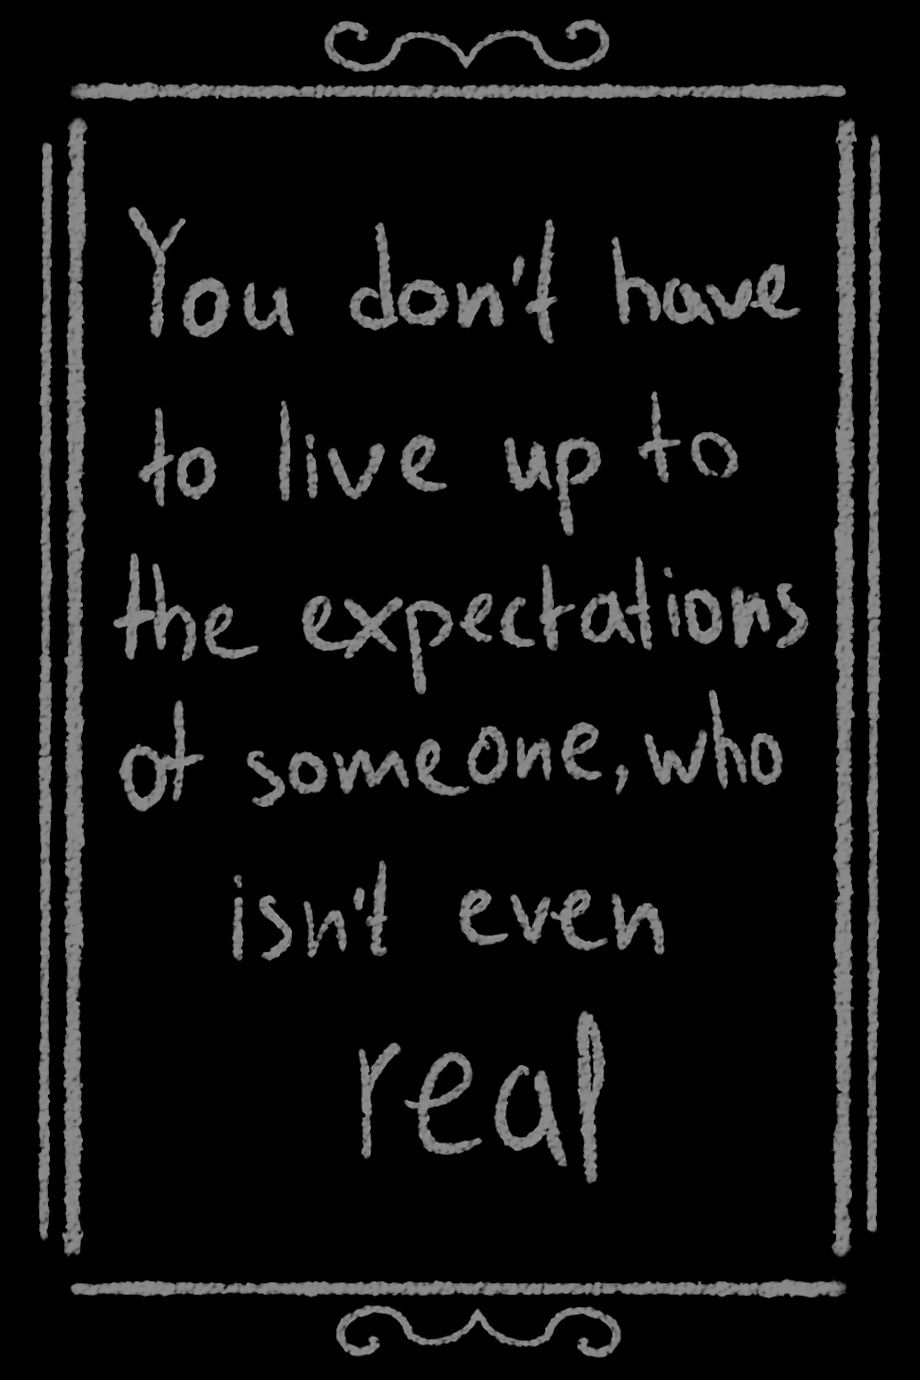 You don't have
to live up to
the expectations
of someone, who
isn't even
real